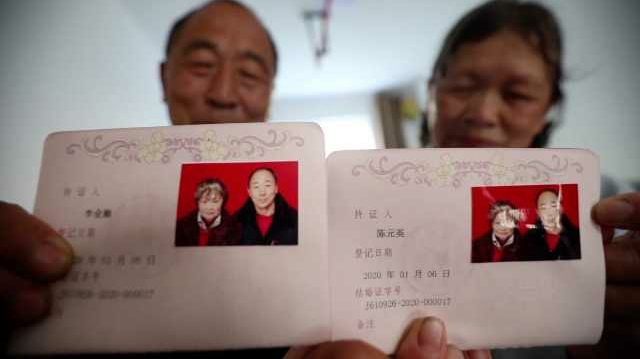 持证人
登记日期
J610926-2020-000017
持证人
陈元英
登记日期
2020 年 01 月 06 日
结婚证字号
J610926-2020-000017
备注